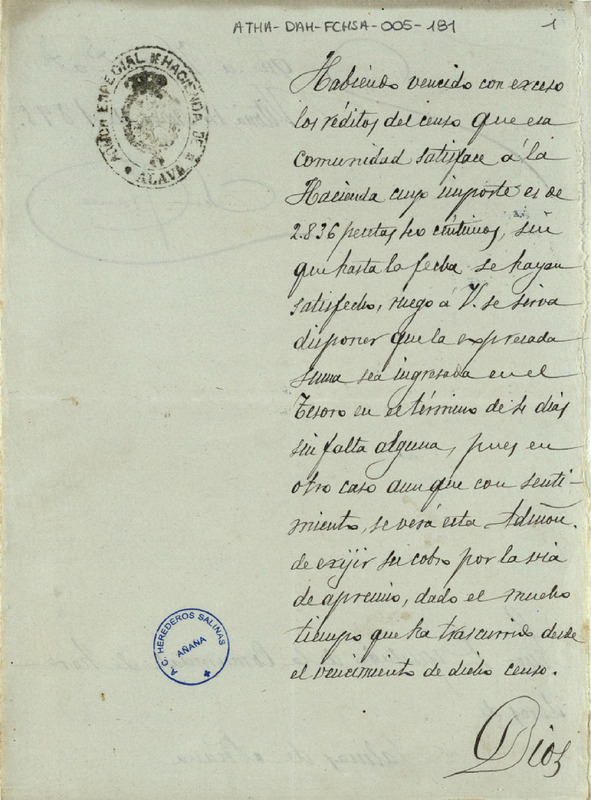 ATHA-DAH-FCHSA-005-181
1
ADMON ESPECIAL DE HACIENDA DE
ALAVA
Habiendo vencido con exceso
los réditos del censo que esa
comunidad satisface á la
Hacienda cuyo importe es de
2.836 pesetas céntimos, sin
que hasta la fecha se hayan
satisfecho, ruego á V. se sirva
disponer que la expresada
suma sea ingresada en el
Tesoro en el término de días
sin falta alguna, pues en
otro caso aunque con senti-
miento, se verá esta Admon.
de exijir su cobro por la via
de apremio, dado el mucho
tiempo que ha trascurrido desde
el vencimiento de dicho censo.
Dios
A. C. HEREDEROS SALINAS
AÑANA